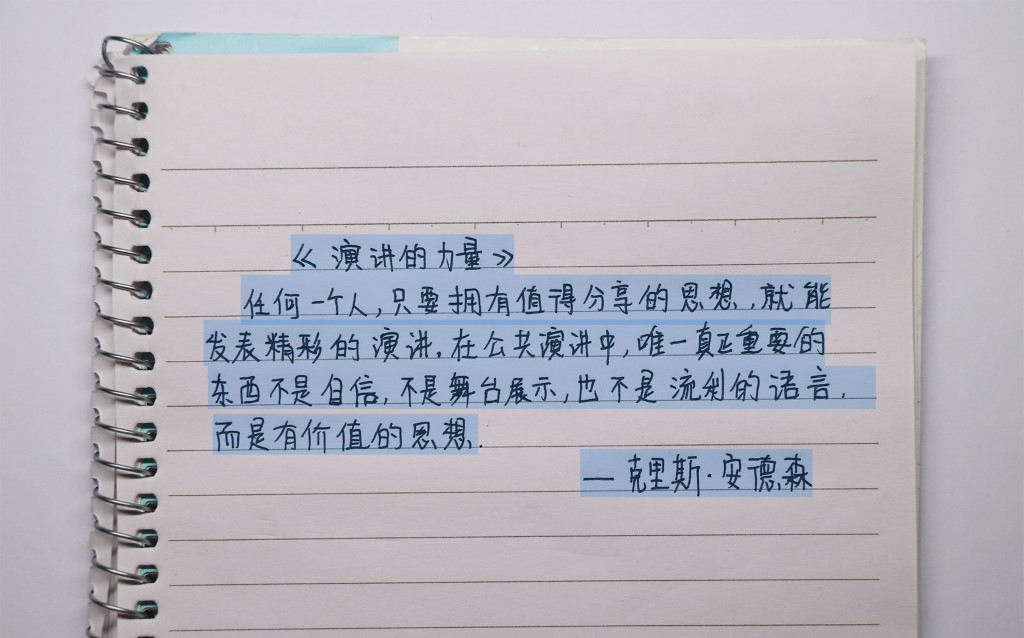 《演讲的力量》
任何一个人,只要拥有值得分享的思想,就能
发表精彩的演讲。在公共演讲中,唯一真正重要的
东西不是自信,不是舞台展示,也不是流利的语言,
而是有价值的思想.
— 克里斯·安德森